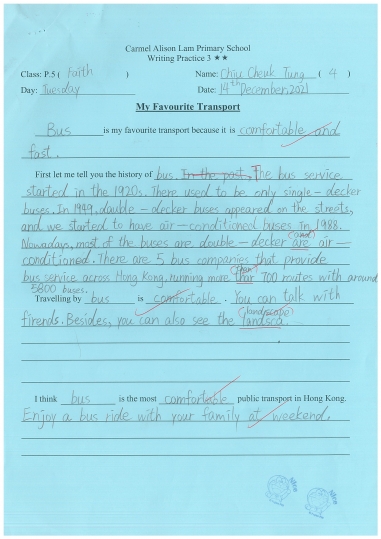 Carmel Alison Lam Primary School
Writing Practice 3 ★★
Class: P.5 ( Faith ) Name: Chiu Cheuk Tung ( 4 )
Day: Tuesday Date: 14th December, 2021
My Favourite Transport
Bus is my favourite transport because it is comfortable and
fast.
First let me tell you the history of bus. In the past, The bus service
started in the 1920s. There used to be only single-decker
buses. In 1949, double-decker buses appeared on the streets,
and we started to have air-conditioned buses in 1988.
(and)
Nowaday, most of the buses are double-decker are air-
conditioned. There are 5 bus companies that provide
(than)
bus service across Hong Kong, running more thar 700 routes with around
5800 buses.
Travelling by bus is comfortable. You can talk with
(landscape)
firends. Besides, you can also see the landsca.
I think bus is the most comfortable public transport in Hong Kong.
Enjoy a bus ride with your family at weekend.